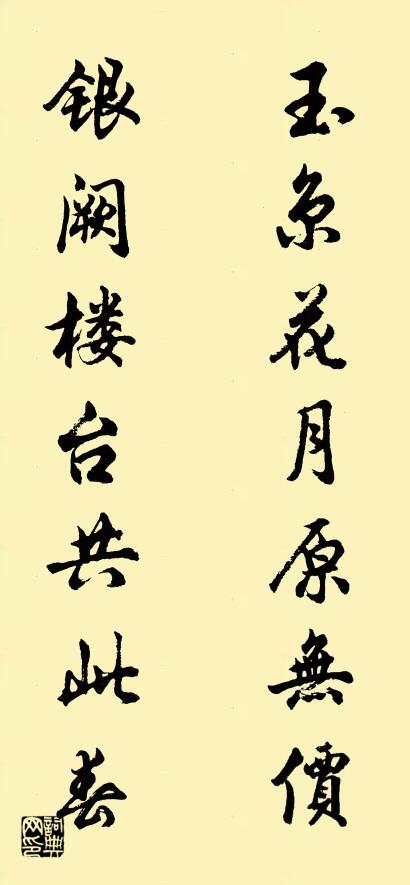 玉京花月原無價
銀阙楼台共此春
詞典网印